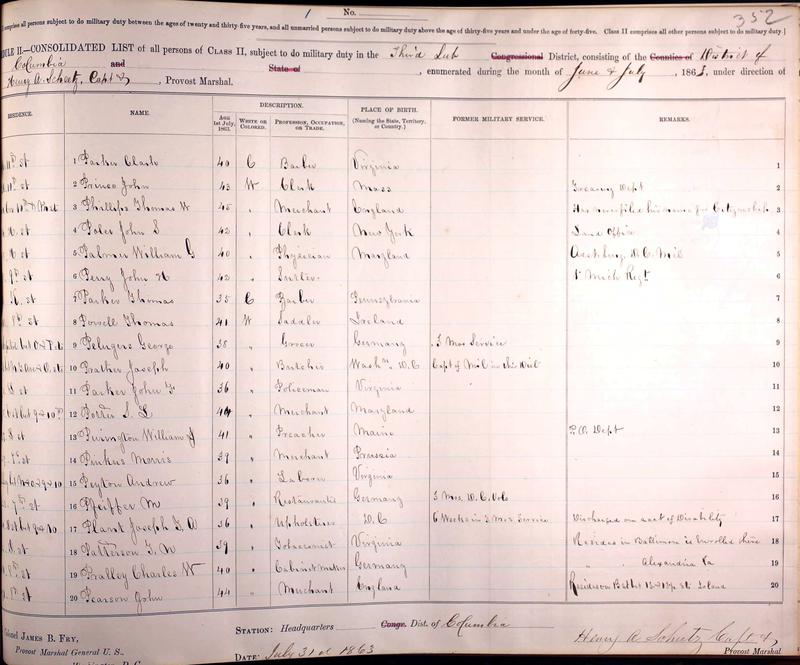 1 No.
352
[ comprises all persons subject to do military duty between the ages of twenty and thirty-five years, and all unmarried persons subject to do military duty above the age of thirty-five years and under the age of forty-five. Class II comprises all other persons subject to do military duty ]
DULE II.—CONSOLIDATED LIST of all persons of Class II, subject to do military duty in the Third Sub Congressional District, consisting of the Counties of District of
Columbia and State of , enumerated during the month of June & July , 1863, under direction of
Henry A. Scheetz, Capt & , Provost Marshal.
RESIDENCE. NAME. DESCRIPTION. PLACE OF BIRTH. (Naming the State, Territory, or Country.) FORMER MILITARY SERVICE. REMARKS.
AGE 1st July, 1863. WHITE OR COLORED. PROFESSION, OCCUPATION, OR TRADE.
11th st 1 Parker Clark 40 C Barber Virginia 1
10th st 2 Prince John 43 W Clerk Mass Treasury Dept 2
3 Phillips Thomas W 45 " Merchant England 3
st 4 Poles John S 42 " Clerk New York Land Office 4
st 5 Palmer William G 40 " Physician Maryland D. C. Mil 5
9th st 6 Perry John H 42 " Sutler 1st Mich Regt 6
K. st 7 Parker Thomas 35 C Barber Pennsylvania 7
st 8 Powell Thomas 41 W Saddler Ireland 8
9 Pelugers George 38 " Grocer Germany 3 Mos Service 9
10 Prather Joseph 40 " Butcher Washn. D. C Capt of Mil in this Dist 10
st 11 Parker John F 36 " Policeman Virginia 11
12 Porter S. L 44 " Merchant Maryland 12
st 13 Purington William J 41 " Preacher Maine P. O. Dept 13
st 14 Pinkus Morris 39 " Merchant Prussia 14
15 Peyton Andrew 36 " Laborer Virginia 15
st 16 Pfeiffer M 39 " Restaurant Germany 3 Mos. D. C. Vols 16
17 Plant Joseph T. A 36 " Upholsterer D. C 6 Weeks in 3 Mos Service Discharged on acct of Disability 17
st 18 Patterson F. W 39 " Tobacconist Virginia Resides in Baltimore is Enrolled there 18
st 19 Pralley Charles W 40 " Cabinet Maker Germany " " Alexandria Va 19
st 20 Pearson John 44 " Merchant England 20
Colonel JAMES B. FRY,
Provost Marshal General U. S.,
Washington, D. C.
STATION: Headquarters Congl. Dist. of Columbia
DATE: July 31st 1863
Henry A Scheetz Capt &
Provost Marshal